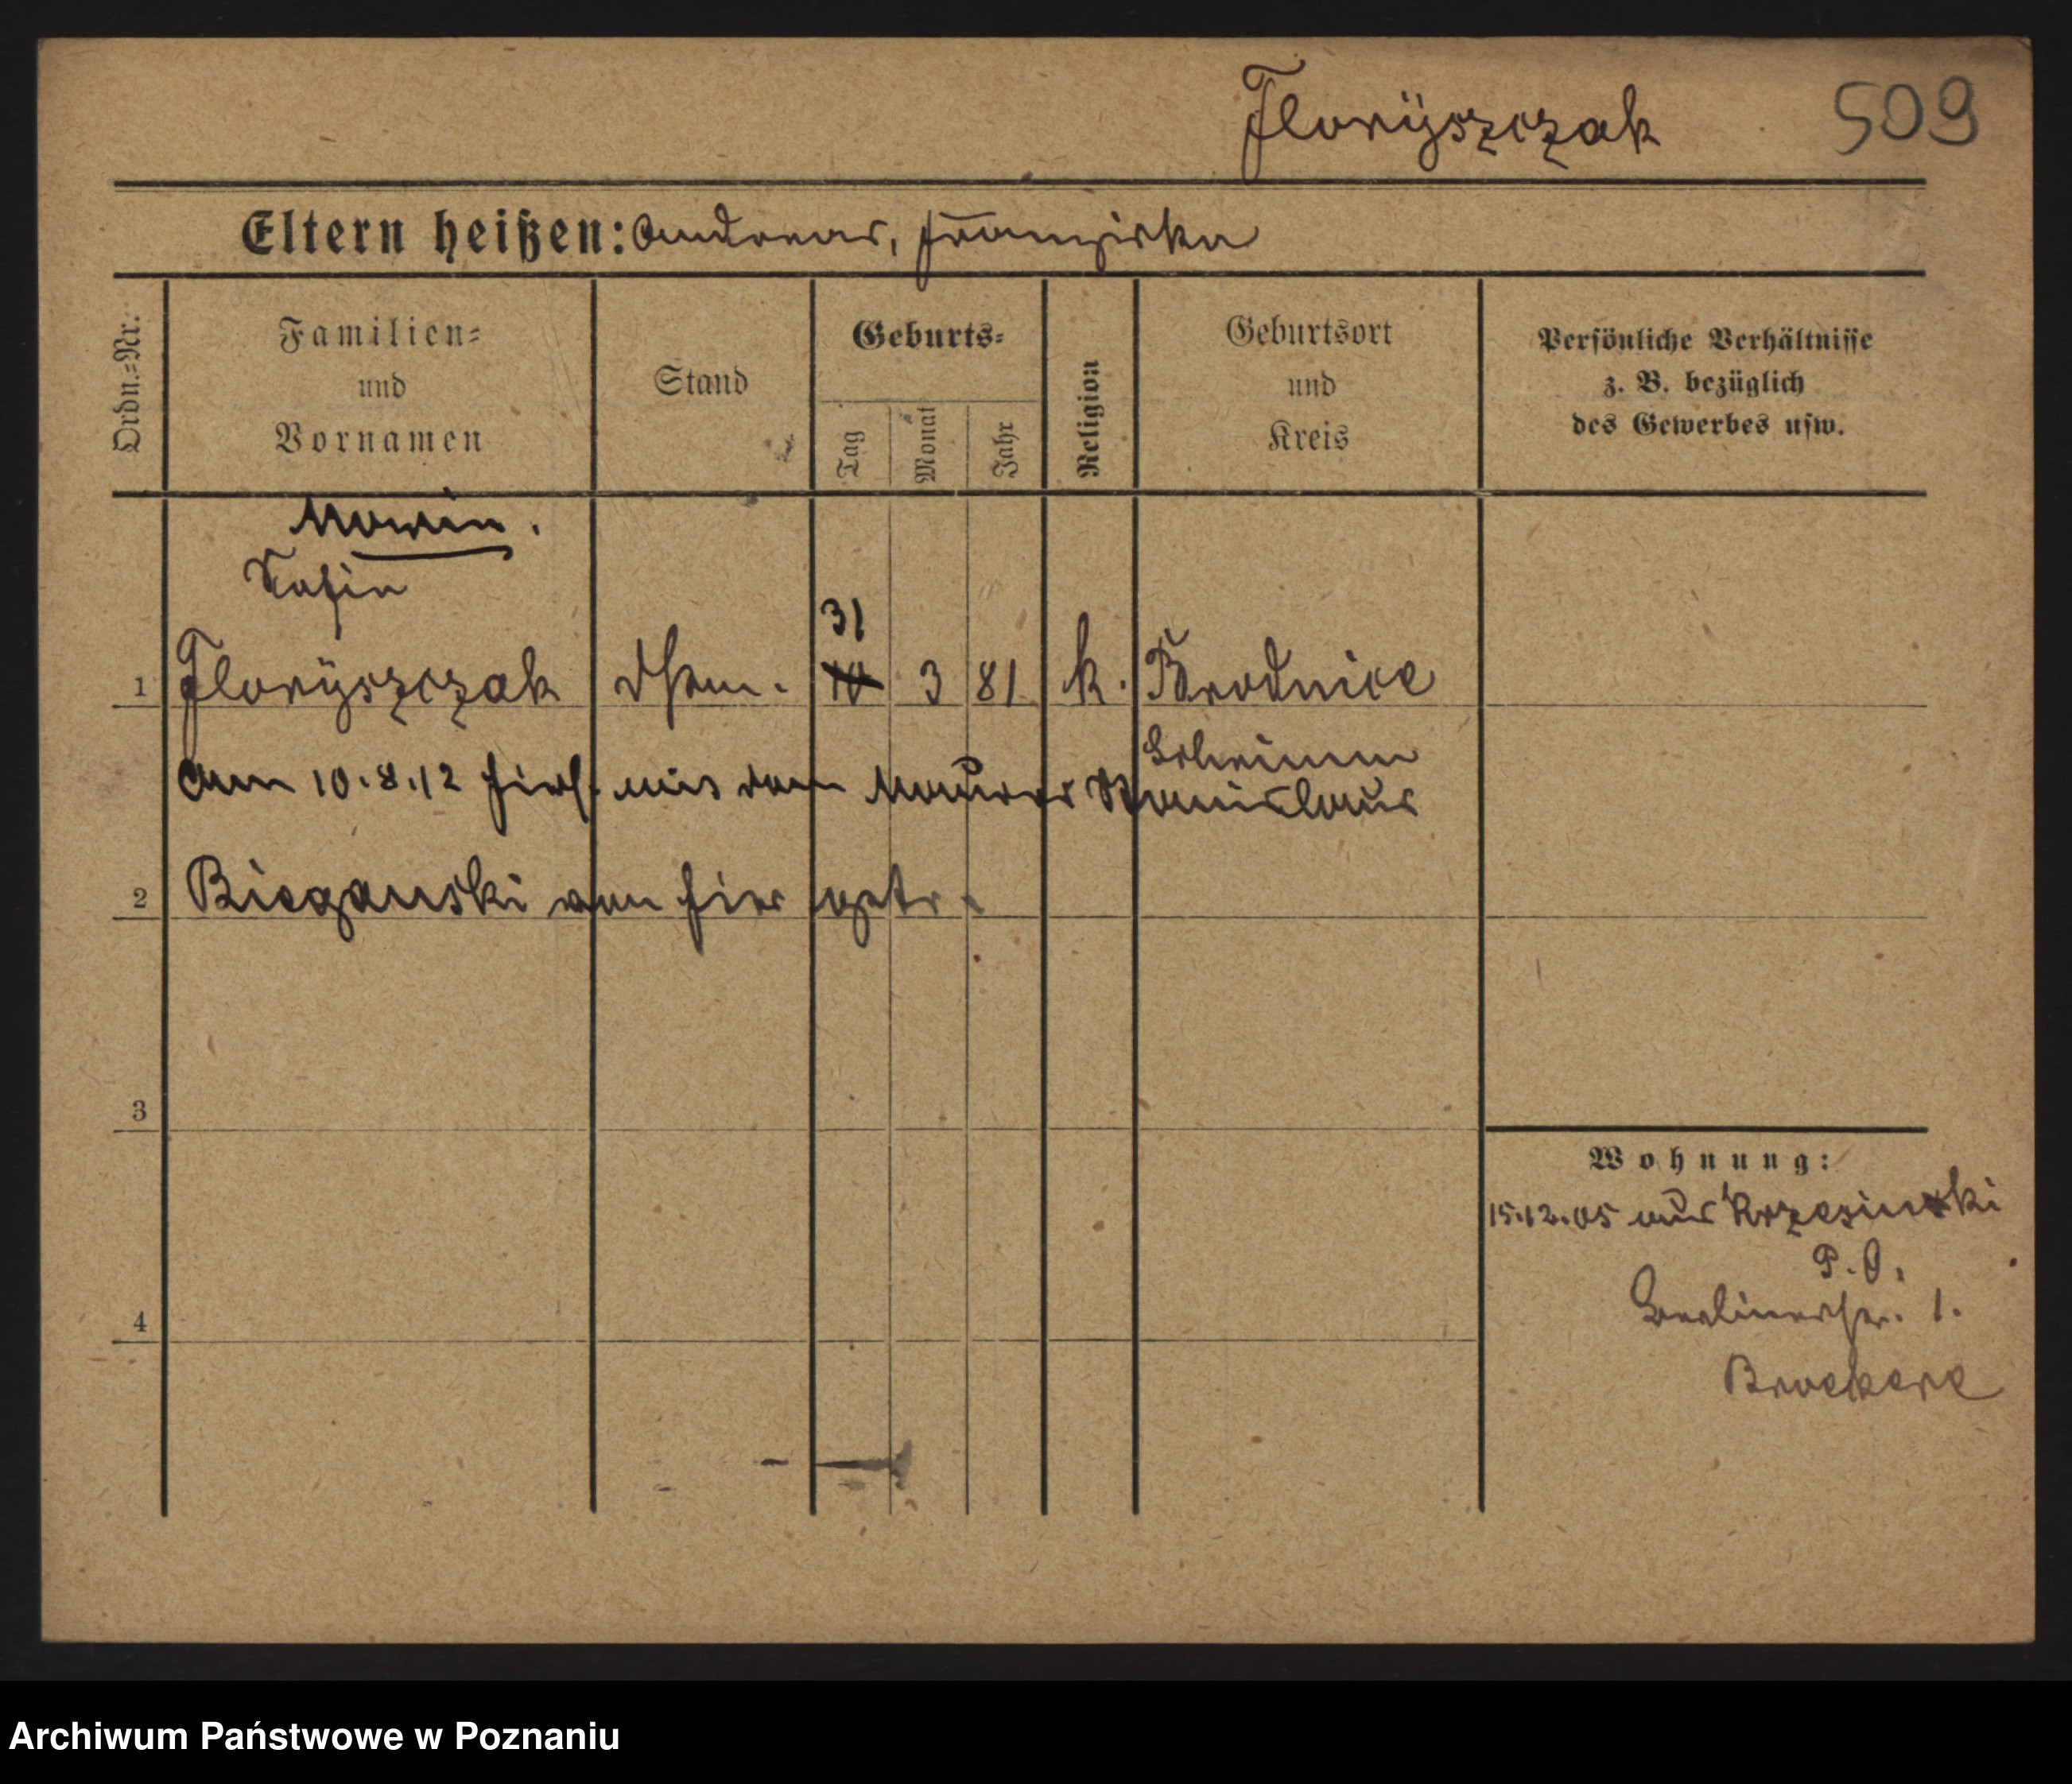 Floryszczak 509
Eltern heißen: Andreas, Franziska
Ordn.-Nr.
Familien-
und
Vornamen
Stand
Geburts-
Tag
Monat
Jahr
Religion
Geburtsort
und
Kreis
Persönliche Verhältnisse
z. B. bezüglich
des Gewerbes usw.
Marie.
Sofie
31
1 Floryszczak 10 3 81 k. Brodnice
Schrimm
am 10.8.12 hies. mit dem Maurer Stanislaus
2 Bieganski von hier getr.
3
Wohnung:
15.12.05 aus Krzesinski
P. O.
4 Berlinerstr. 1.
Archiwum Państwowe w Poznaniu